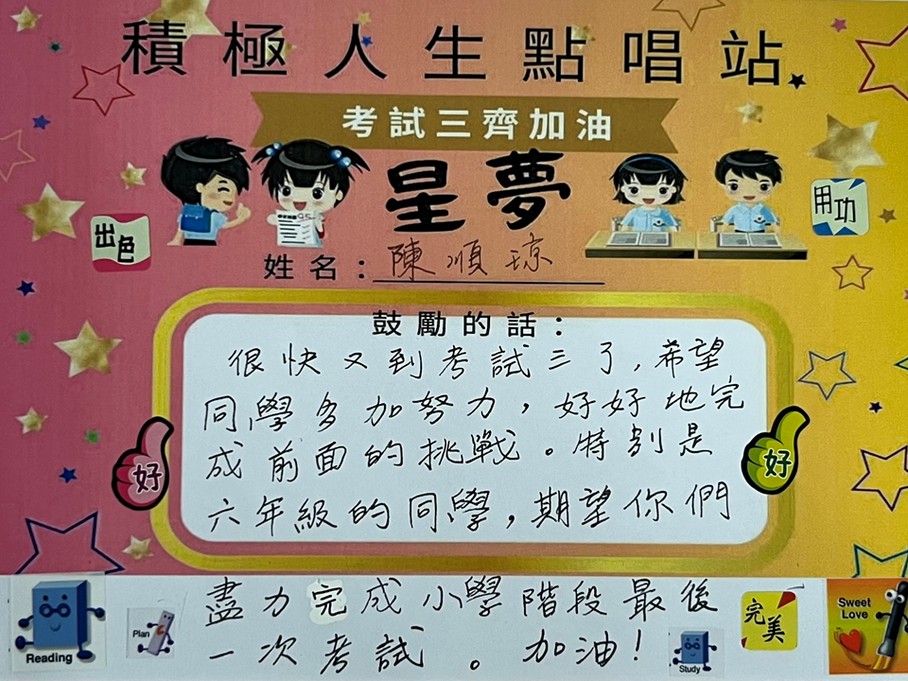 積極人生點唱站
考試三齊加油
星夢
出色
用功
姓名：陳順琼
鼓勵的話：
很快又到考試三了，希望
同學多加努力，好好地完
成前面的挑戰。特別是
六年級的同學，期望你們
好
好
盡力完成小學階段最後
一次考試。加油！
Reading
Plan
Study
完美
Sweet
Love